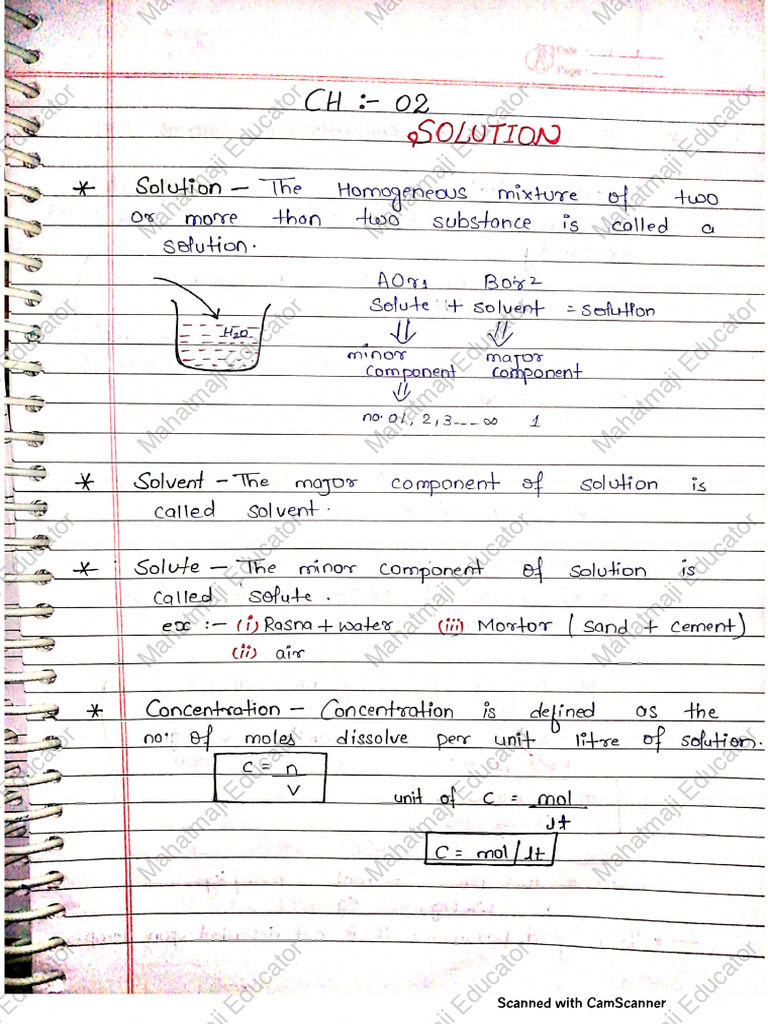 Date
Page
CH :- 02
SOLUTION
* Solution - The Homogeneous mixture of two
or more than two substance is called a
solution.
A Or 1 B or 2
Solute + solvent = solution
H2O
⇓ ⇓
minor major
component component
⇓
no. 01, 2, 3 --- ∞ 1
* Solvent - The major component of solution is
called solvent.
* Solute - The minor component of solution is
called solute.
ex :- (i) Rasna + water (iii) Mortor ( sand + cement )
(ii) air
* Concentration - Concentration is defined as the
no. of moles dissolve per unit litre of solution.
C = n
V
unit of C = mol
lt
C = mol / lt
Mahatmaji Educator
Scanned with CamScanner